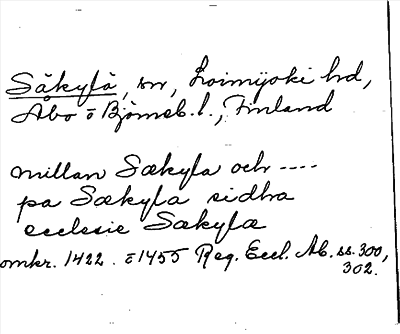 Säkylä, sn, Loimijoki hd,
Åbo o Björneb. l., Finland
millan Sækyla och ----
pa Sækyla sidha
ecclesie Sakylæ
omkr. 1422 . o 1455 Reg. Eccl. Ab. ss. 300,
302.